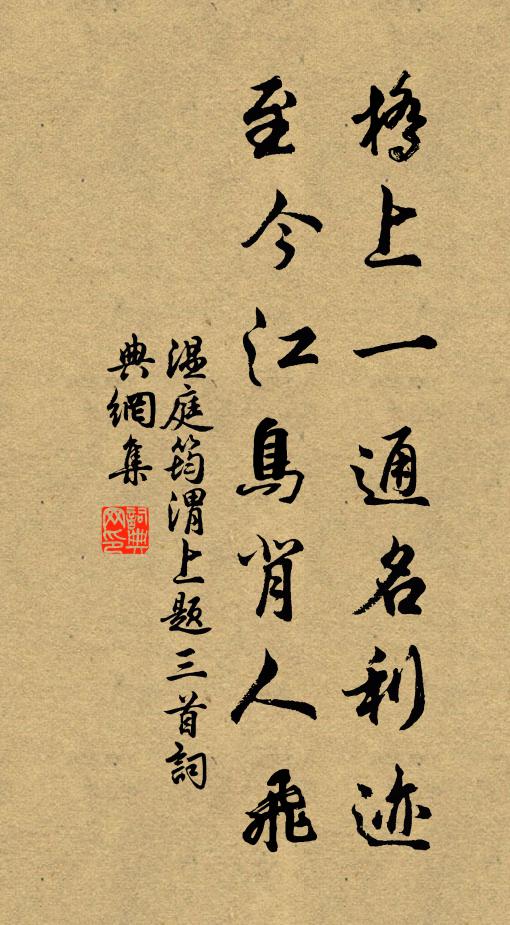 橋上一通名利迹
至今江鳥背人飛
温庭筠渭上題三首詞
典網集
詞典
网印